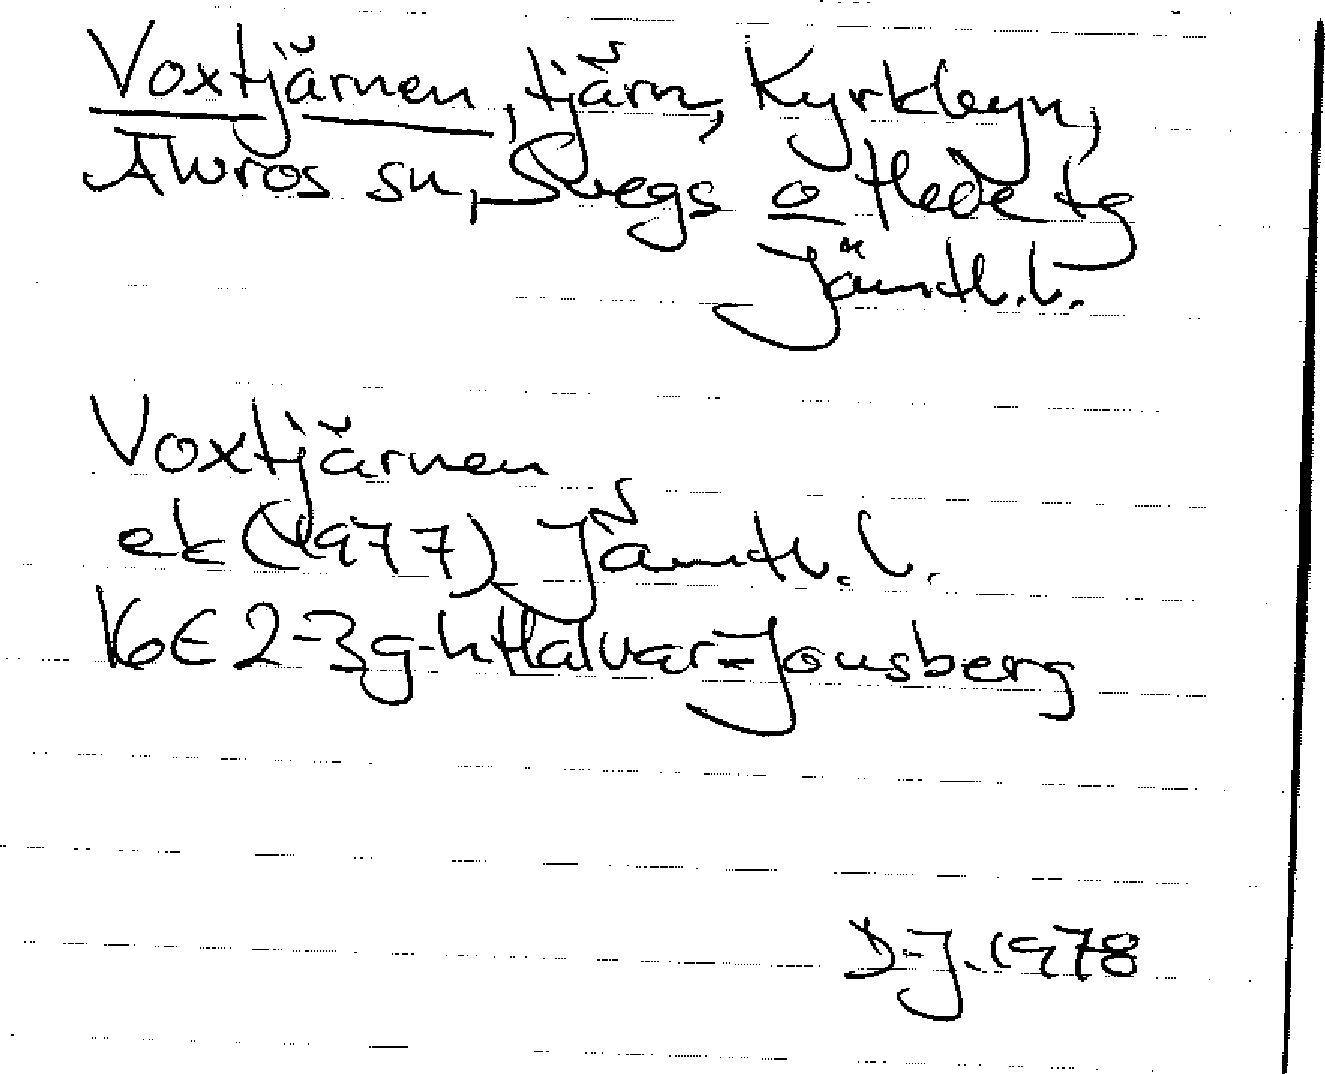 Voxtjärnen, tjärn, Kyrkbyn,
Älvros sn, Svegs o Hede tg
Jämtl.l.
Voxtjärnen
ek (1977) Jämtl.l.
16E 2-3g-h Halvar-Jonsberg
D-J.1978